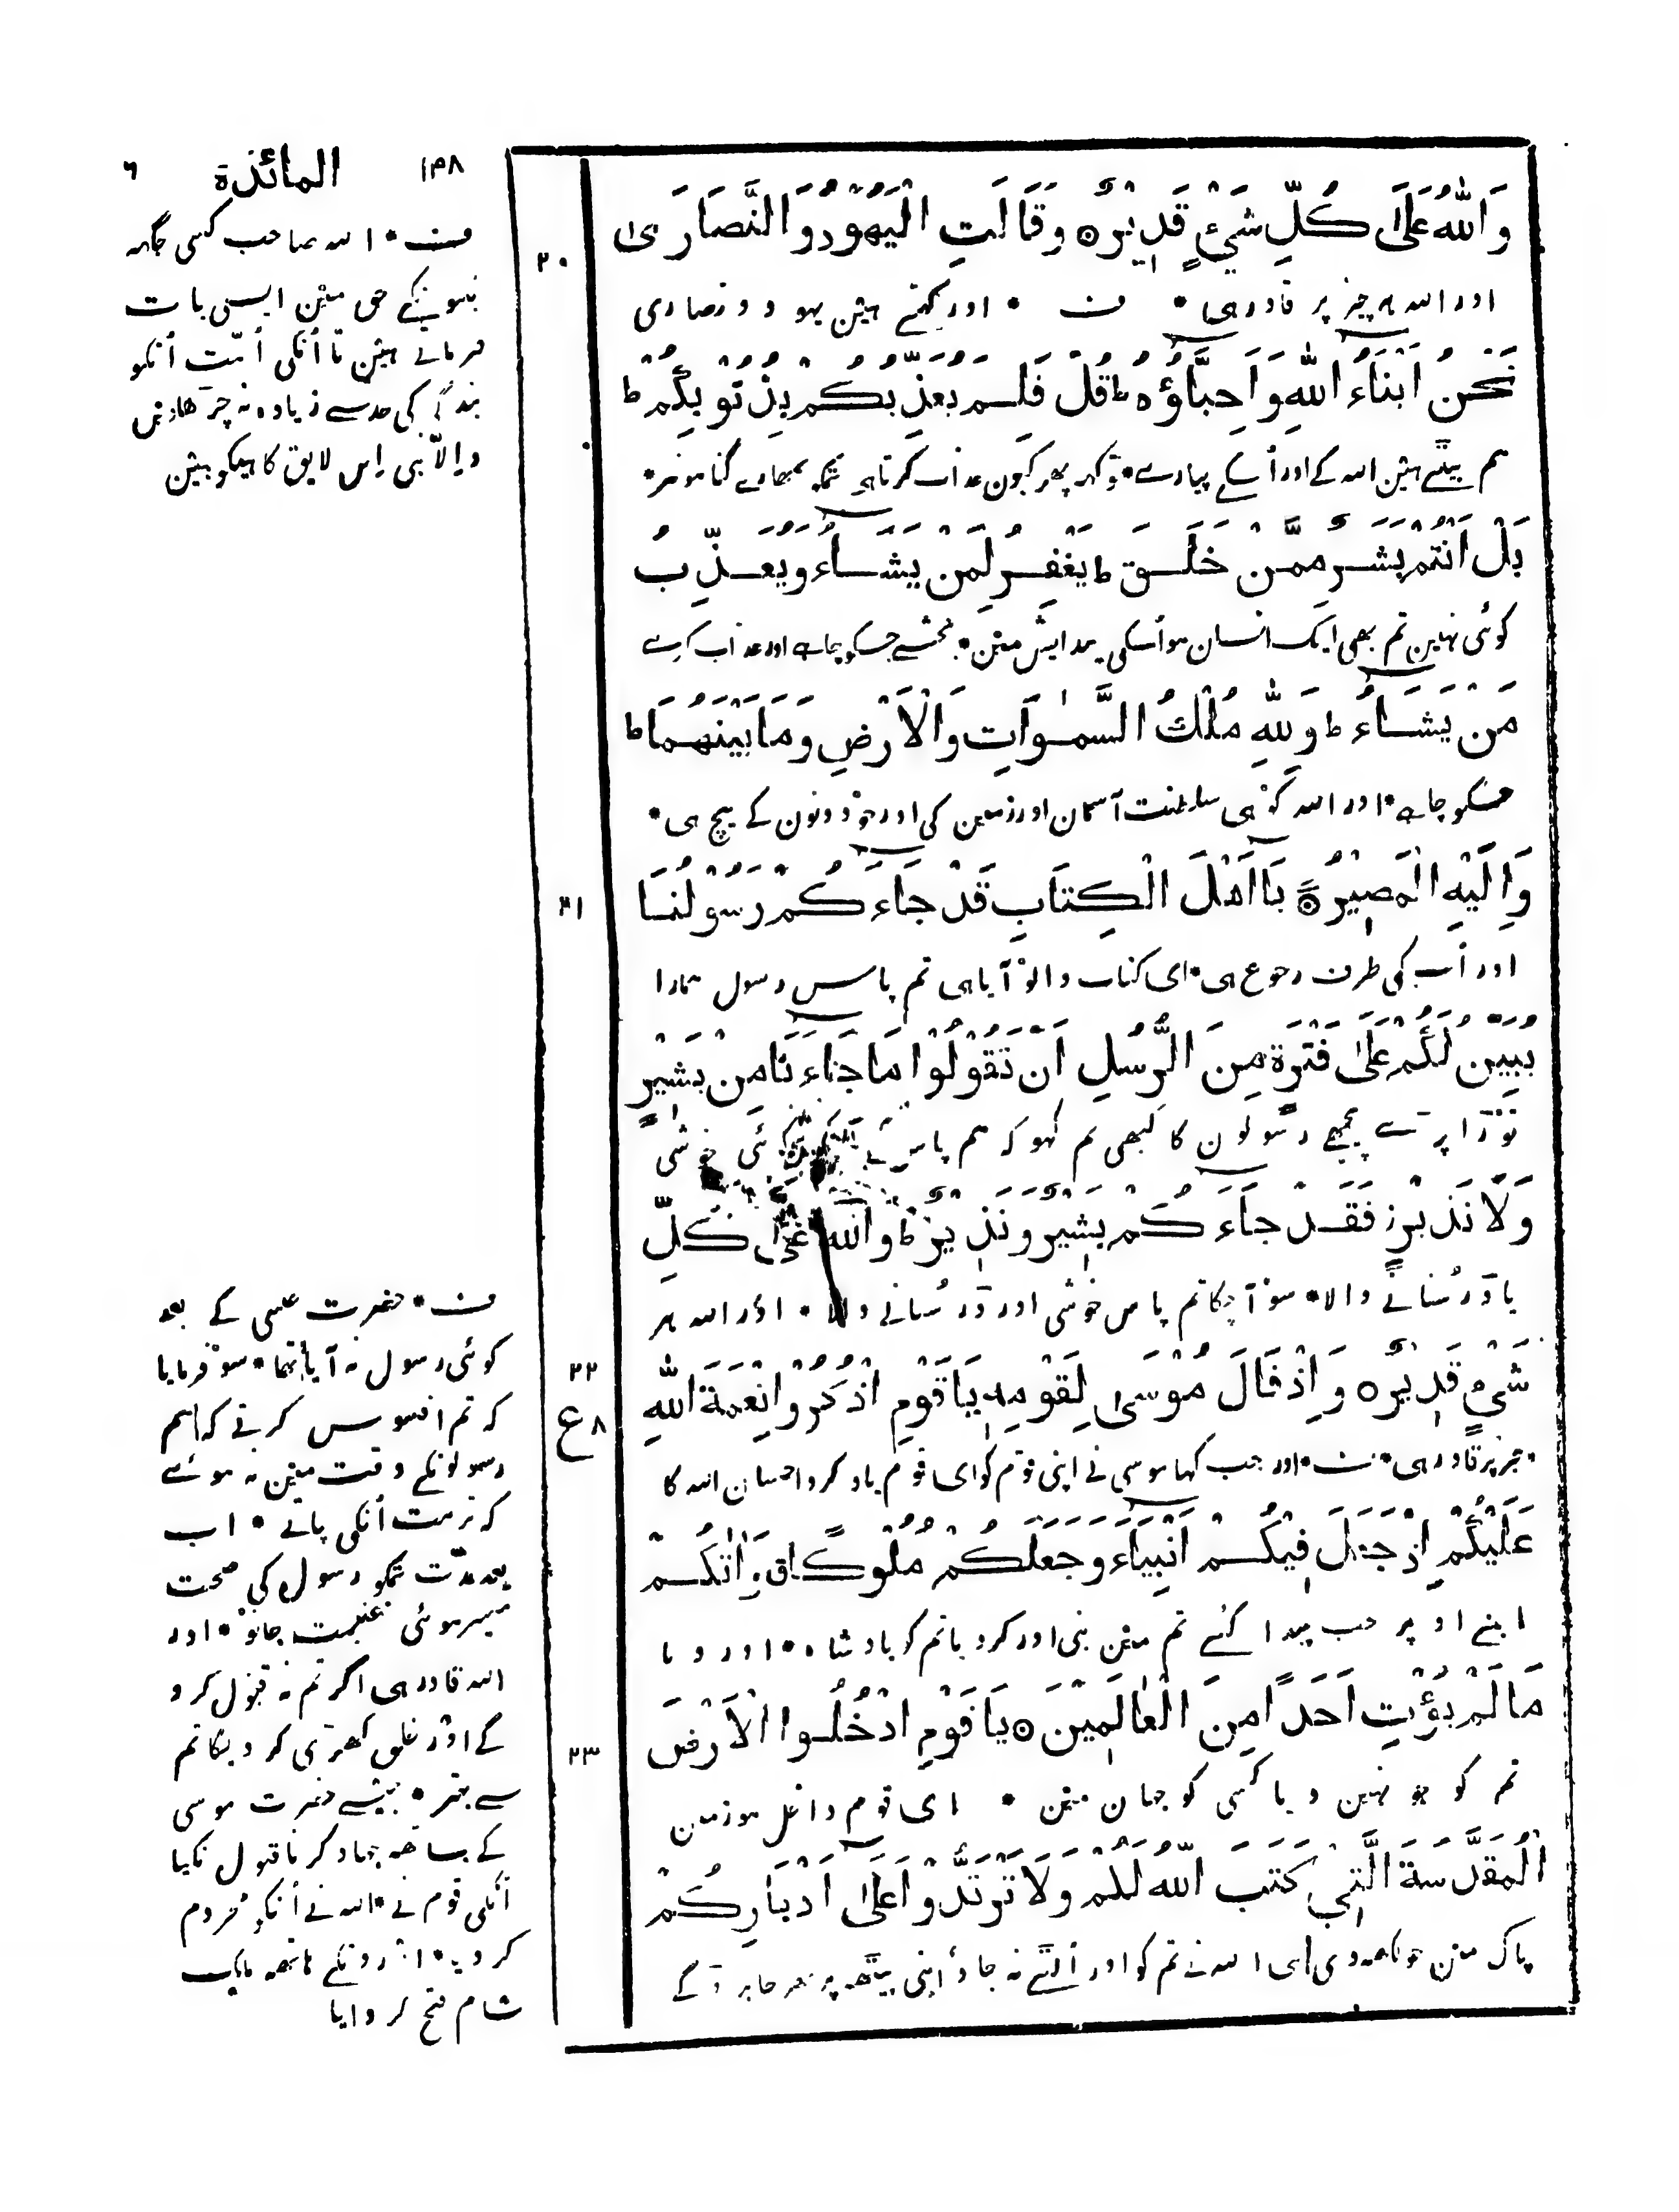 ١٤٨ المائدة ٦
وَاللّٰهُ عَلَىٰ كُلِّ شَيْءٍ قَدِيْرٌ ۝ وَقَالَتِ الْيَهُوْدُ وَالنَّصَارَىٰ
٢٠
اور اللہ ہر چیز پر قادر ہی * ف * اور کہتے ہیں یہود و نصاری
نَحْنُ اَبْنَاءُ اللّٰهِ وَاَحِبَّاؤُهُ ط قُلْ فَلِمَ يُعَذِّبُكُمْ بِذُنُوْبِكُمْ ط
ہم بیٹے ہیں اللہ کے اور اُسکے پیارے * تو کہہ پھر کیون عذاب کرتا ہی تمکو تمھارے گناہونپر *
بَلْ اَنْتُمْ بَشَرٌ مِمَّنْ خَلَقَ ط يَغْفِرُ لِمَنْ يَشَاءُ وَيُعَذِّبُ
کوئی نہین تم بھی ایک انسان ہو اُسکی پیدایش مین * بخشے جسکو چاہے اور عذاب کرے
مَنْ يَشَاءُ ط وَلِلّٰهِ مُلْكُ السَّمٰوَاتِ وَالْاَرْضِ وَمَا بَيْنَهُمَا ط
جسکو چاہے * اور اللہ کو ہی سلطنت آسمان اور زمین کی اور جو دونون کے بیچ ہی *
وَاِلَيْهِ الْمَصِيْرُ ۝ يَا اَهْلَ الْكِتَابِ قَدْ جَاءَكُمْ رَسُوْلُنَا
٢١
اور اُسکی طرف رجوع ہی * ای کتاب والو آیا ہی تم پاس رسول ہمارا
يُبَيِّنُ لَكُمْ عَلَىٰ فَتْرَةٍ مِنَ الرُّسُلِ اَنْ تَقُوْلُوْا مَا جَاءَنَا مِنْ بَشِيْرٍ
توڑا پڑے پیچھے رسولون کا کبھی تم کہو کہ ہم پاس خوشی
وَلَا نَذِيْرٍ ز فَقَدْ جَاءَكُمْ بَشِيْرٌ وَنَذِيْرٌ ط وَاللّٰهُ عَلَىٰ كُلِّ
یا ڈر سُنانے والا * سو آ چکا تم پاس خوشی اور ڈر سُنانے والا * اور اللہ ہر
شَيْءٍ قَدِيْرٌ ۝ وَاِذْ قَالَ مُوْسَىٰ لِقَوْمِهٖ يَا قَوْمِ اذْكُرُوْا نِعْمَةَ اللّٰهِ
٢٢
ع ٨
چیز پر قادر ہی * ف * اور جب کہا موسی نے اپنی قوم کو ای قوم یاد کرو احسان اللہ کا
عَلَيْكُمْ اِذْ جَعَلَ فِيْكُمْ اَنْبِيَاءَ وَجَعَلَكُمْ مُلُوْكًا ق وَاٰتٰكُمْ
اپنے اوپر جب پیدا کئے تم مین نبی اور کر دیا تم کو بادشاہ * اور دیا
مَا لَمْ يُؤْتِ اَحَدًا مِنَ الْعٰالَمِيْنَ ۝ يَا قَوْمِ ادْخُلُوا الْاَرْضَ
٢٣
تم کو جو نہین دیا کسی کو جہان مین * ای قوم داخل ہو زمین
الْمُقَدَّسَةَ الَّتِيْ كَتَبَ اللّٰهُ لَكُمْ وَلَا تَرْتَدُّوْا عَلَىٰ اَدْبَارِكُمْ
پاک مین جو لکھدی ہی اللہ نے تم کو اور اُلٹے نہ جاؤ اپنی پیٹھ پر پھر جا پڑوگے
ف * اللہ صاحب کسی جگہہ
نبیونکے حق مین ایسی بات
فرماتے ہین تا اُنکی اُمّت اُنکو
بندگی کی حد سے زیادہ نہ چڑھاوین
و اِلّا نبی اِس لایق کاہیکو ہین
ف * حضرت عیسی کے بعد
کوئی رسول نہ آیا تھا * سو فرمایا
کہ تم افسوس کرتے کہ ہم
رسولونکے وقت مین نہ ہوئے
کہ تربیت اُنکی پاتے * اب
بعد مدّت تمکو رسول کی صحبت
میسر ہوئی غنیمت جانو * اور
اللہ قادر ہی اگر تم نہ قبول کرو
گے اور خلق کھڑی کر دیگا تم
سے بہتر * جیسے حضرت موسی
کے ساتھہ جہاد کرنا قبول نکیا
اُنکی قوم نے * اللہ نے اُنکو محروم
کر دیا * اورونکے ہاتھہ ملک
شام فتح کروایا